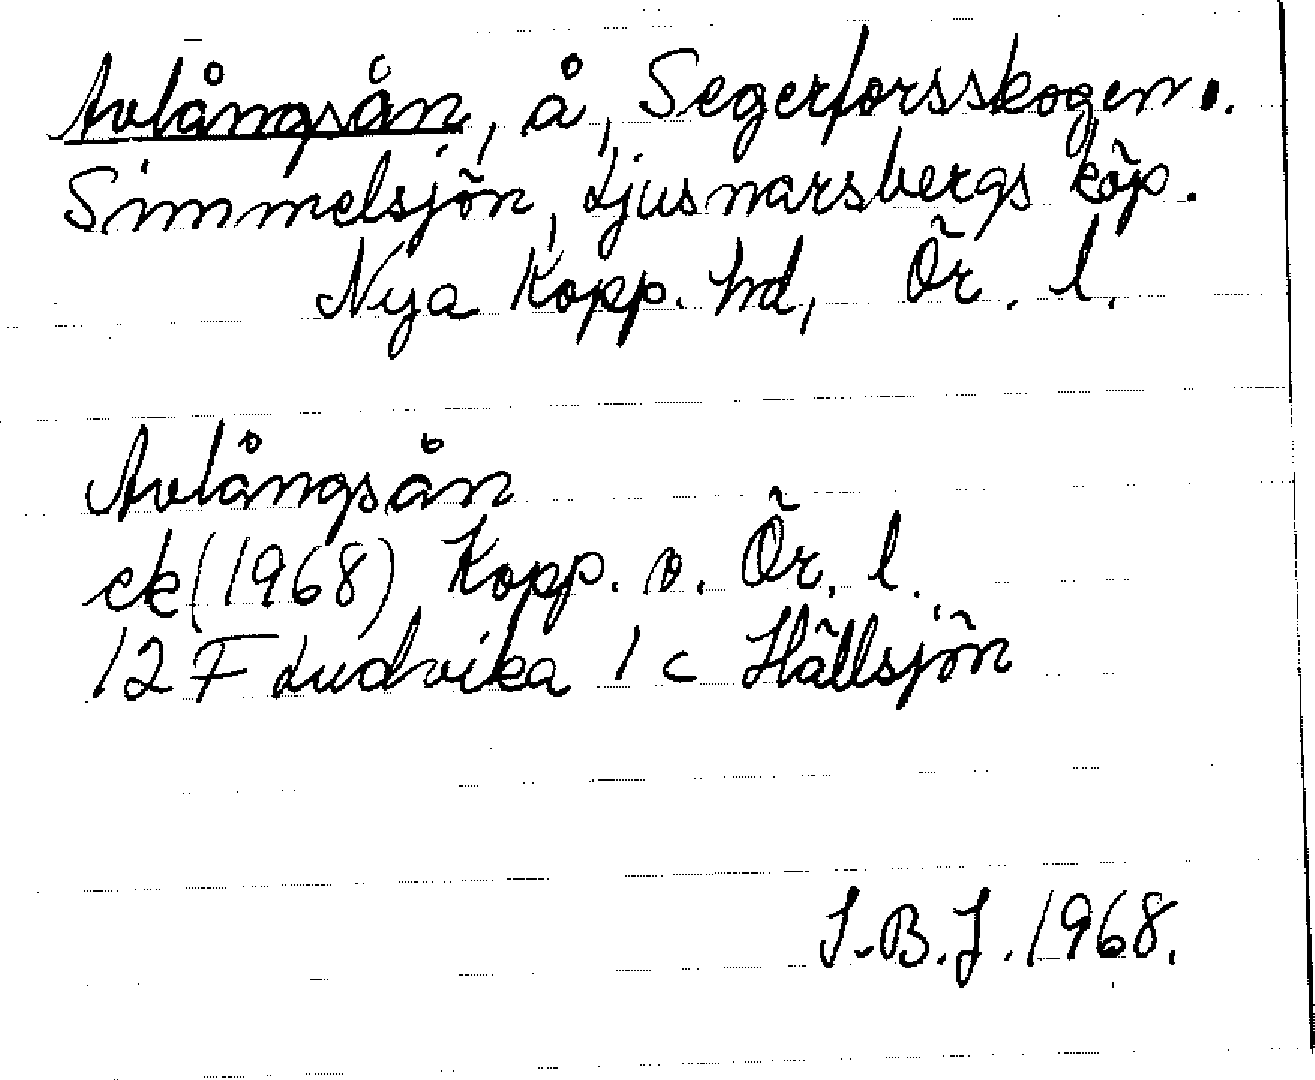 Avlångsån, å, Segerforsskogen.
Simmelsjön, Ljusnarsbergs köp.
Nya Kopp. hd, Ör. l.
Avlångsån
ek (1968) Kopp. o. Ör. l.
12 F Ludvika 1 c Hällsjön
I-B.J. 1968.